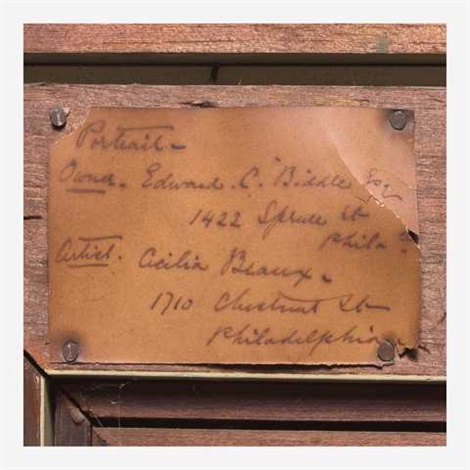 Portrait -
Owner. Edward. C. Biddle Esq
1422 Spruce St
Phila
Artist. Cecilia Beaux -
1710 Chestnut St
Philadelphia